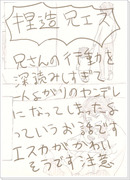 捏造兄エス
兄さんの行動を
深読みしすぎて
一人よがりのヤンデレ
になってしまったよ
っていうお話です
エスカがかわい
そうです注意